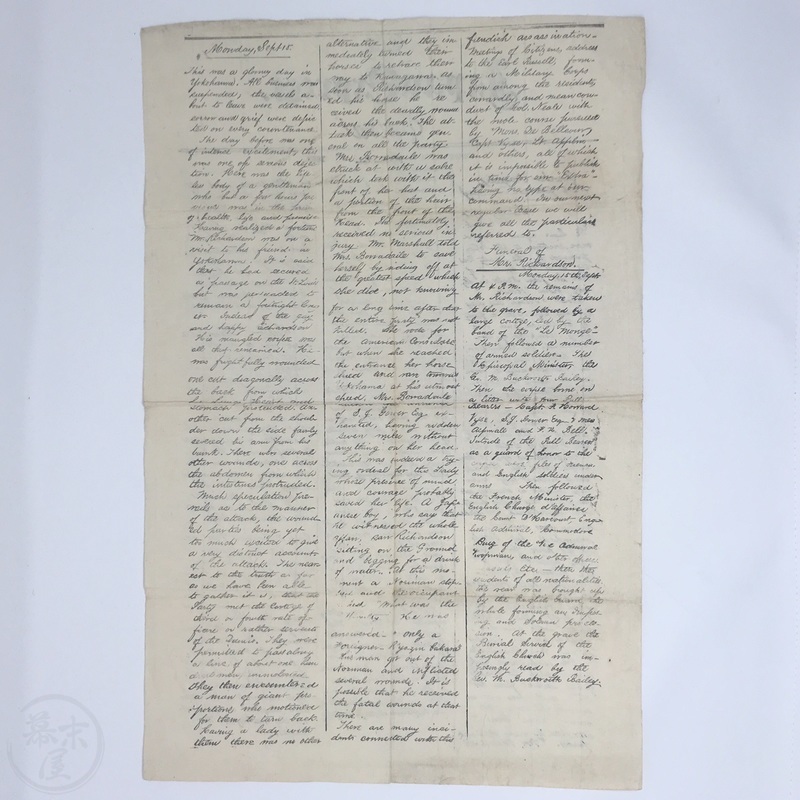 Monday, Sept 15.
This was a gloomy day in
Yokohama. All business was
suspended, the vessels a-
bout to leave were detained
sorrow and grief were depic
ted on every countenance.
The day before was one
of intense excitement, this
was one of serious dejec
tion. Here was the life
less body of a gentleman
who but a few hours
was in the
of health, life and
Having realized a fortune
Mr. Richardson was on a
visit to his friends in
Yokohama. It is said
that he had secured
a passage on the
but was persuaded to
remain a fortnight
Instead of the gay
and happy Richardson
His mangled corpse was
all that remained. He
was frightfully wounded
one cut diagonally across
the back from which
the Lungs, Heart and
stomach protruded. An
other cut from the shoul
der down the side fairly
severed his arm from his
trunk. There were several
other wounds, one across
the abdomen from which
the intestines protruded.
Much speculation pre
vails as to the manner
of the attack, the wound
ed parties being yet
too much to give
a very distinct account
of the attack. The near
est to the truth as far
as we have been able
to gather it is, that
Party met the Cortege of
third or fourth rate of
ficers or rather servants
of the Daimio. They were
permitted to pass along
a line of about one hun
dred men unmolested.
They then encountered
a man of giant pro-
portions who motioned
for them to turn back.
Having a lady with
them there was no other
alternative and they im
mediately turned their
horses to retrace their
way to Kanagawa. As
soon as Richardson turn
ed his horse he re
ceived the deadly wound
across his back. The at-
tack then became gen
eral on all the party.
Mrs. Borradaile was
struck at with a sabre
which took with it the
front of her hat and
a portion of the hair
from the front of the
Head. She fortunately
received no serious in
jury. Mr. Marshall told
Mrs Borradaile to save
herself by riding off at
the greatest speed which
she did, not knowing
for a long time after
the entire party was not
killed. She rode for
the American Consulate
but when she reached
the entrance her horse
shied and ran towards
Yokohama at his utmost
speed, Mrs. Borradaile
of S. J. Gower Esq ex-
hausted, having ridden
seven miles without
anything on her head.
This was indeed a try
ing ordeal for this Lady
whose presence of mind
and courage probably
saved her life. A Jap
anese boy, who says that
he witnessed the whole
affair, saw Richardson
sitting on the Ground
and begging for a drink
of water. At this mo-
ment a Norimon stop
ped and the occupant
What was the
He was
answered—"only a
Foreigner.
The man got out of the
Norimon and inflicted
several wounds. It is
possible that he received
the fatal wounds at that
time.
There are many inci-
dents connected with this
fiendish assassination—
Meetings of Citizens, address
to the Earl Russell, form
ing a Military Corps
from among the residents
cowardly and mean con-
duct of Col. Neale with
the noble course pursued
by Mons De Bellecour,
Capt Vyse & Lt Applin
and others, all of which
it is impossible to publish
in time for an "Extra"
having no type at our
command. In our next
regular issue we will
give all the particulars
referred to.
Funeral of
Mr. Richardson.
Monday, 15th Sept
At 4 P.M. the remains of
Mr. Richardson were taken
to the grave, followed by a
large cortege, led by the
band of the "Le Monge"
Then followed a number
of armed soldiers— The
Episcopal Minister, the
Rev. M. Buckworth Bailey.
Then the corpse borne on
a litter with four Pall
Bearers— Capt. F. Howard
Vyse, S. J. Gower Esq—
Aspinall and F. H. Bell.
Outside of the Pall Bearers
as a guard of honor to the
files of French
and English soldiers under
arms. Then followed
the French Minister, the
English Charge d'affaires
the Count A Harcourt,
Admiral, Commodore
of the Vice Admiral
and
then the
residents of all nationalities
the rear was brought up
by the English Guard, the
whole forming an Impos-
ing and Solemn proces-
sion. At the grave the
Burial Service of the
English Church was im-
pressively read by the
Rev. M. Buckworth Bailey.
幕末屋